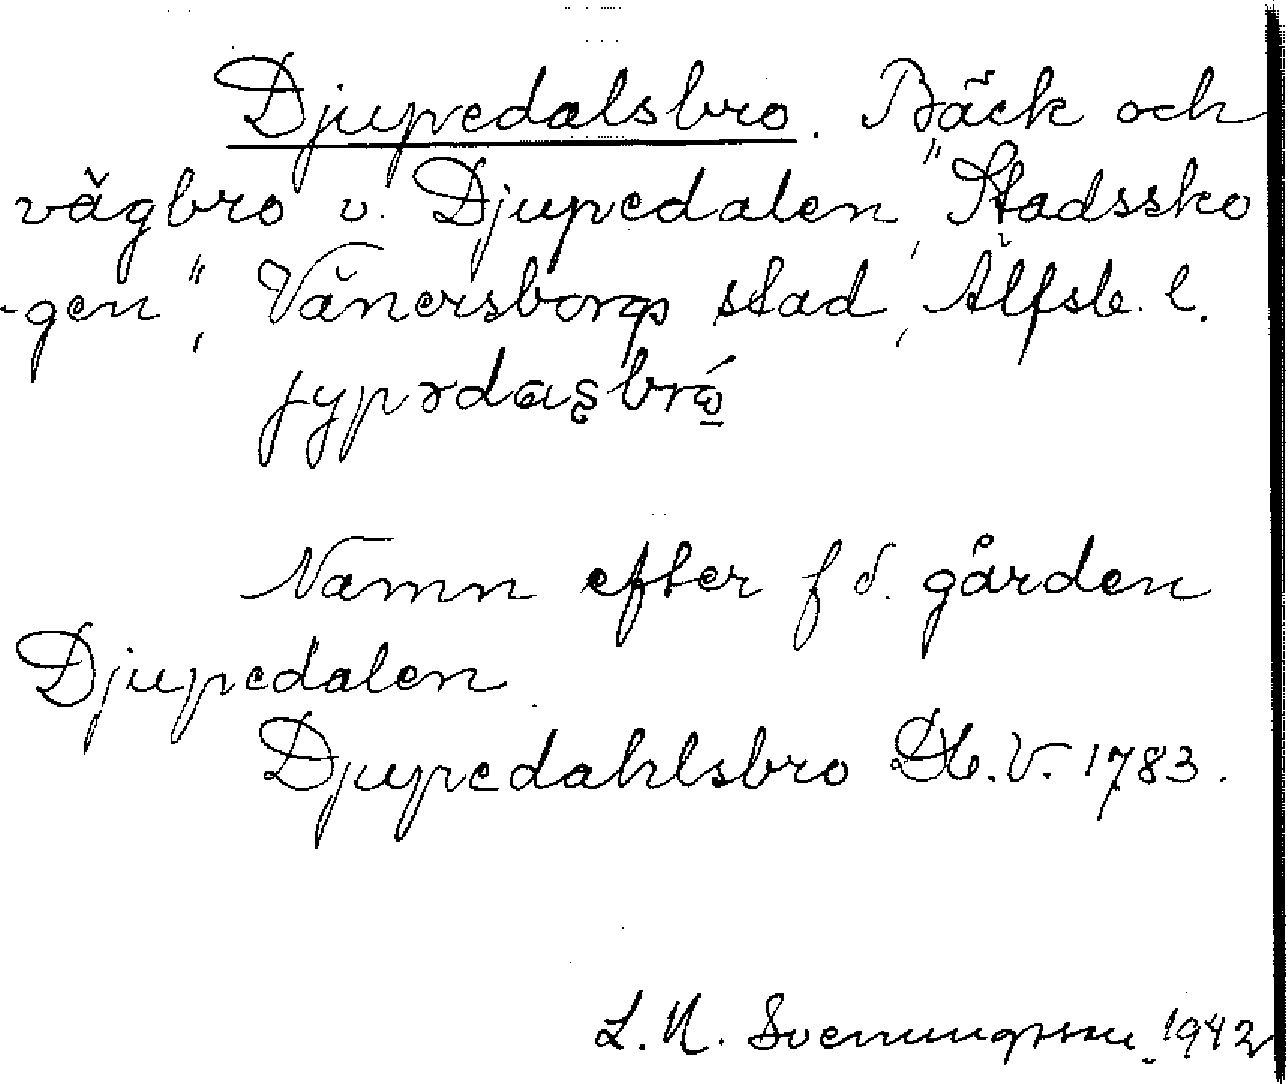 Djupedalsbro. Bäck och
vägbro v. Djupedalen, "Stadssko
-gen", Vänersborgs stad, Älfsb. l.
Namn efter f d. gården
Djupedalen.
Djupedahlsbro Db. V. 1783.
L. N. Svenungsson 1942